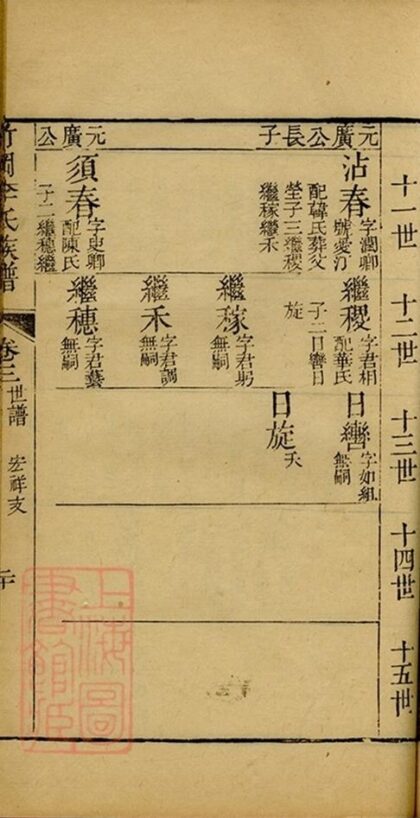 十一世
十二世
十三世
十四世
十五世
元廣公長子
沾春
字潤卿
號愛汀
配韓氏葬父
塋子三繼稷
繼稼繼禾
繼稷
字君相
配華氏
子二日轡日
旋
日轡
字如組
無嗣
日旋
夭
繼稼
字君躬
無嗣
繼禾
字君調
無嗣
元廣公
須春
字史卿
配陳氏
子二繼穗繼
繼穗
字君藝
無嗣
李氏族譜
卷三
世譜
宏祥支
上海圖書館藏